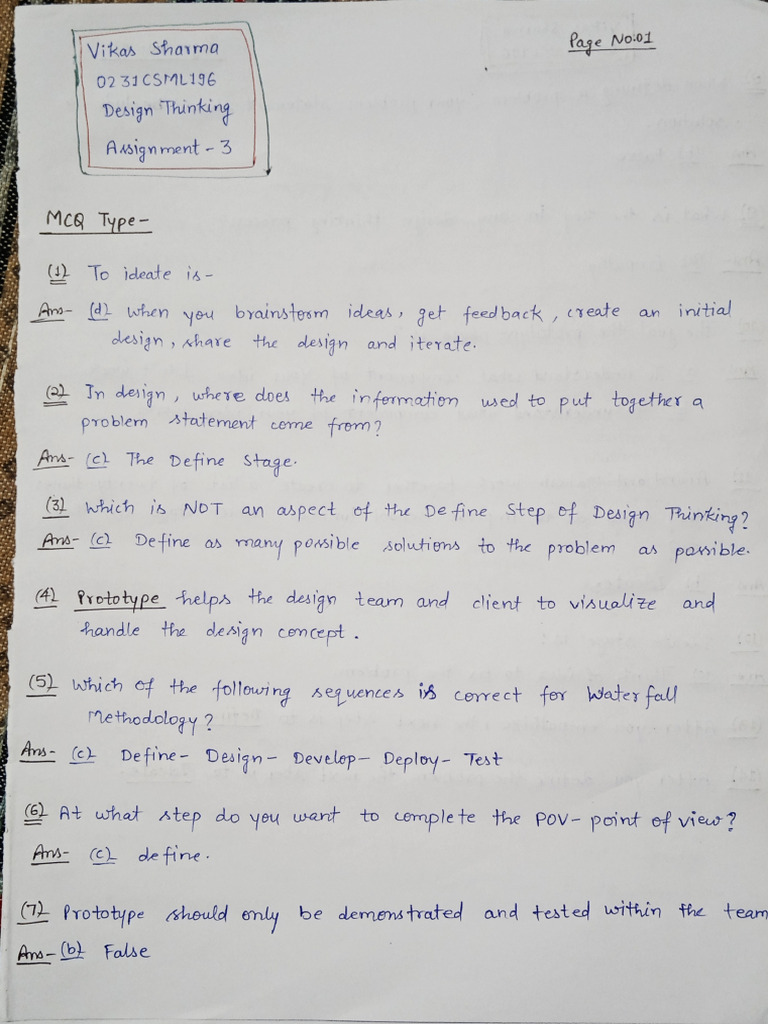 Vikas Sharma
0231CSML196
Design Thinking
Assignment - 3
Page No:01
MCQ Type-
(1) To ideate is -
Ans- (d) when you brainstorm ideas, get feedback, create an initial
design, share the design and iterate.
(2) In design, where does the information used to put together a
problem statement come from?
Ans- (c) The Define Stage.
(3) Which is NOT an aspect of the Define Step of Design Thinking?
Ans- (c) Define as many possible solutions to the problem as possible.
(4) Prototype helps the design team and client to visualize and
handle the design concept.
(5) Which of the following sequences is correct for Waterfall
Methodology?
Ans- (c) Define- Design- Develop- Deploy- Test
(6) At what step do you want to complete the POV- point of view?
Ans- (c) define.
(7) Prototype should only be demonstrated and tested within the team
Ans- (b) False